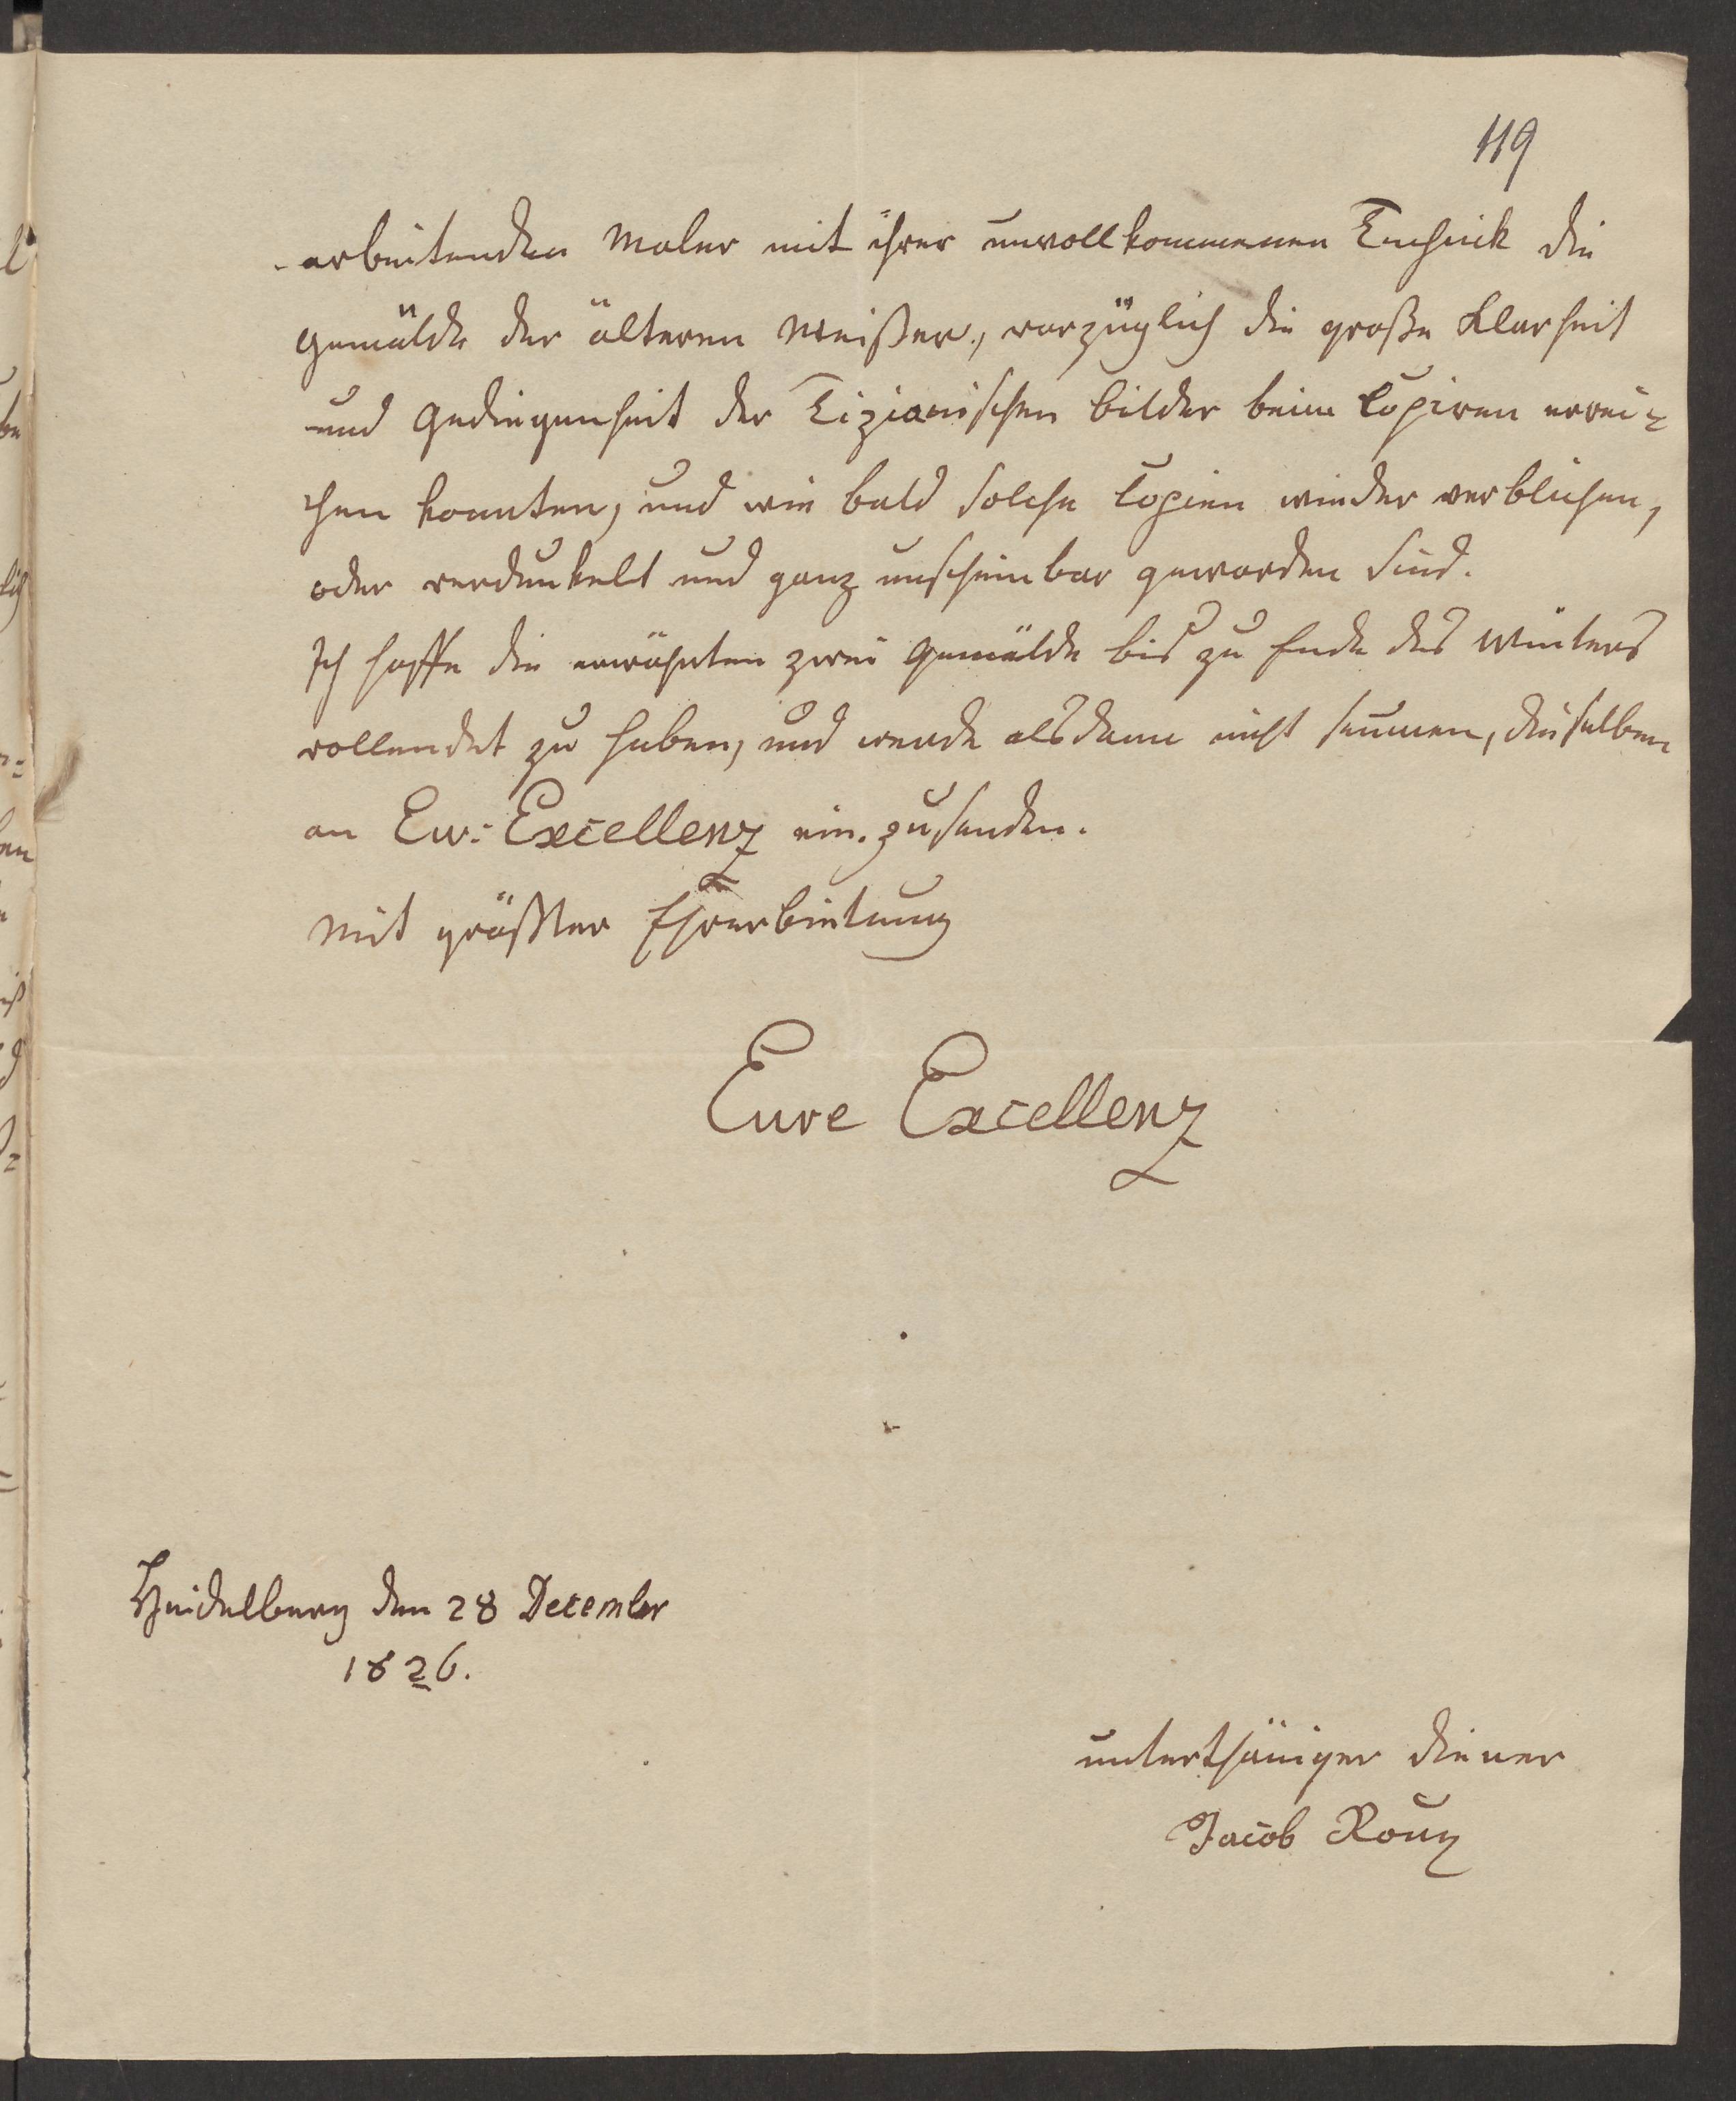 119
arbeitenden Maler mit ihrer unvollkommenen Technick die
gemälde der älteren Meister, vorzüglich die große Klarheit
und Gediegenheit der Tizianischen bilder beim Copiren errei-
chen konnten, und wie bald solche Copien wieder verblichen,
oder verdunkelt und ganz unscheinbar geworden sind.
Ich hoffe die erwähnten zwei gemälde bis zu Ende des Winters
vollendet zu haben, und werde alsdann nicht säumen, dieselben
an Ew: Excellenz einzusenden.
Mit größter Ehrerbietung
Eure Excellenz
Heidelberg den 28 December
1826.
unterthäniger diener
Jacob Roux